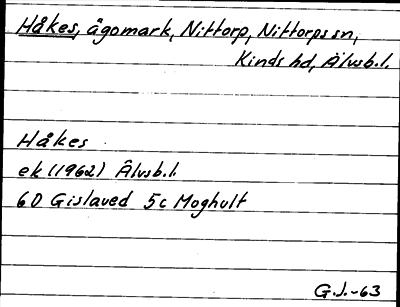 Håkes, ägomark, Nittorp, Nittorps sn,
Kinds hd, Älvsb.l.
Håkes
ek (1962) Älvsb.l.
6D Gislaved 5c Moghult
G.J.-63